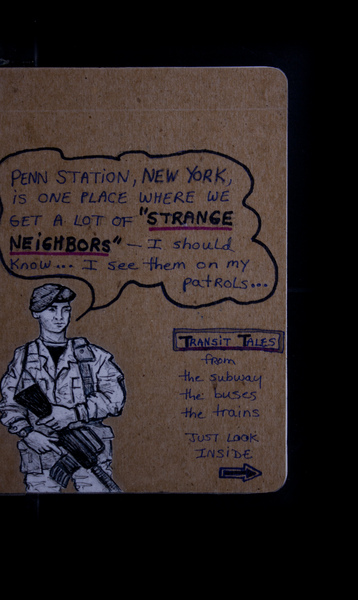 PENN STATION, NEW YORK,
IS ONE PLACE WHERE WE
GET A LOT OF "STRANGE
NEIGHBORS" — I should
know... I see them on my
patrols...
TRANSIT TALES
from
the subway
the buses
the trains
JUST LOOK
INSIDE